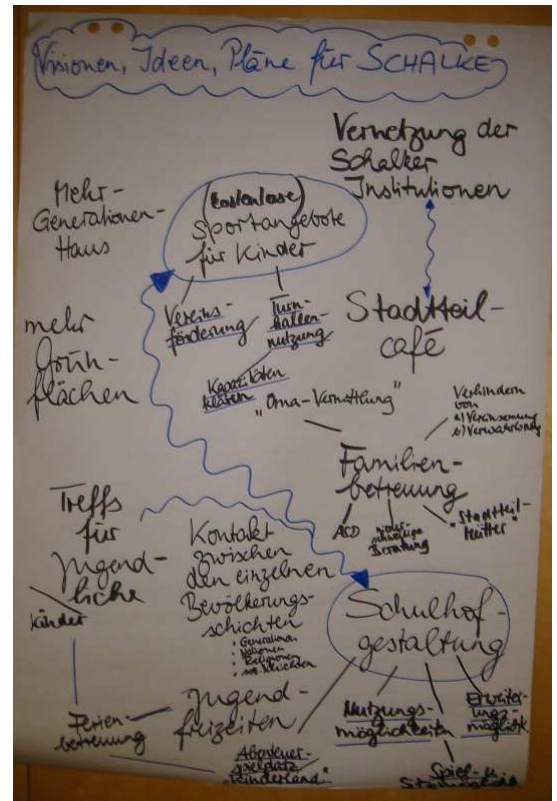 Visionen, Ideen, Pläne für SCHALKE
Vernetzung der
Schalker
Institutionen
Mehr-
Generationen-
Haus
(kostenlose)
Sportangebote
für Kinder
Vereins-
förderung
Turn-
hallen-
nutzung
Kapazitäten
klären
Stadtteil-
café
mehr
Grün-
flächen
"Oma-Vermittlung"
Verhindern
von
a) Vereinsamung
b) Verwahrlosung
Familien-
betreuung
ASD
nieder-
schwellige
Beratung
"Stadtteil-
mütter"
Treffs
für
Jugend-
liche
Kinder
Kontakt
zwischen
den einzelnen
Bevölkerungs-
schichten
• Generationen
• Nationen
• Religionen
Schulhof-
gestaltung
Jugend-
freizeiten
Ferien-
betreuung
Abenteuer-
spielplatz
"Kinderland"
Nutzungs-
möglichkeiten
Erweiter-
ung
möglich?
Spiel- u.